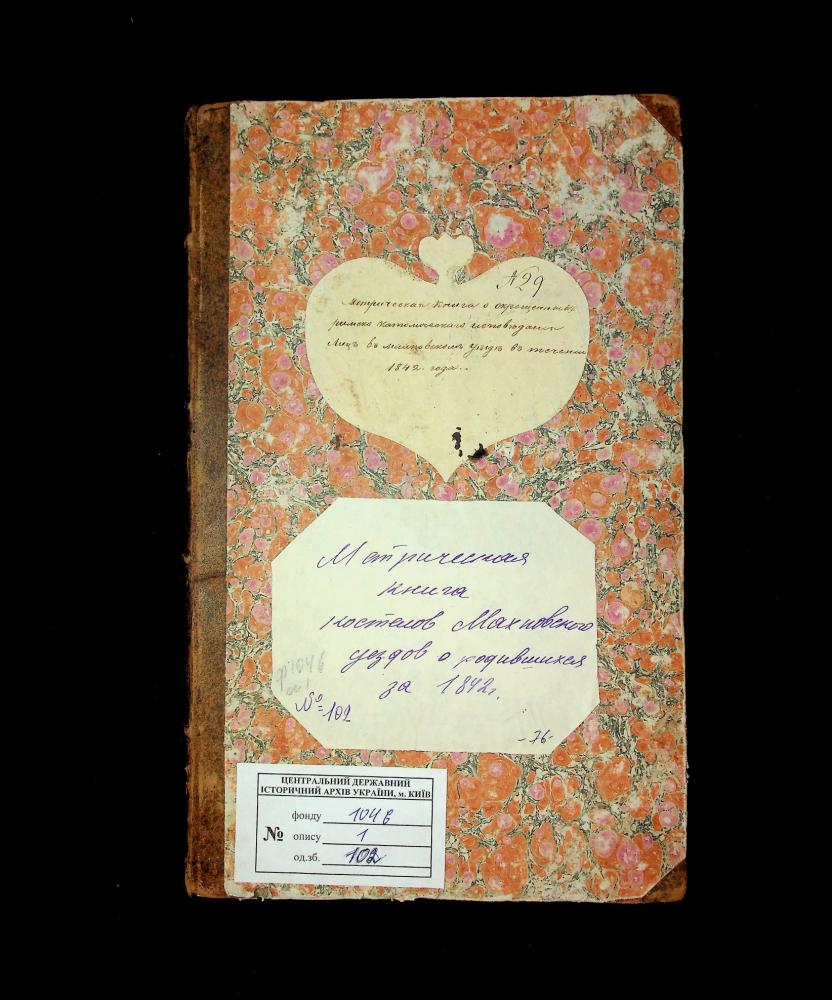 № 29
Метрическая Книга о окрещенныхъ
римско католическаго исповѣданія
лицъ въ махновскомъ уѣздѣ въ теченіи
1842 года.
Метрическая
книга
костелов Махновского
уездов о родившихся
за 1842г.
ф 1046
оп 1
№ 102
-76-
ЦЕНТРАЛЬНИЙ ДЕРЖАВНИЙ
ІСТОРИЧНИЙ АРХІВ УКРАЇНИ, м. КИЇВ
фонду 1046
№ опису 1
од.зб. 102